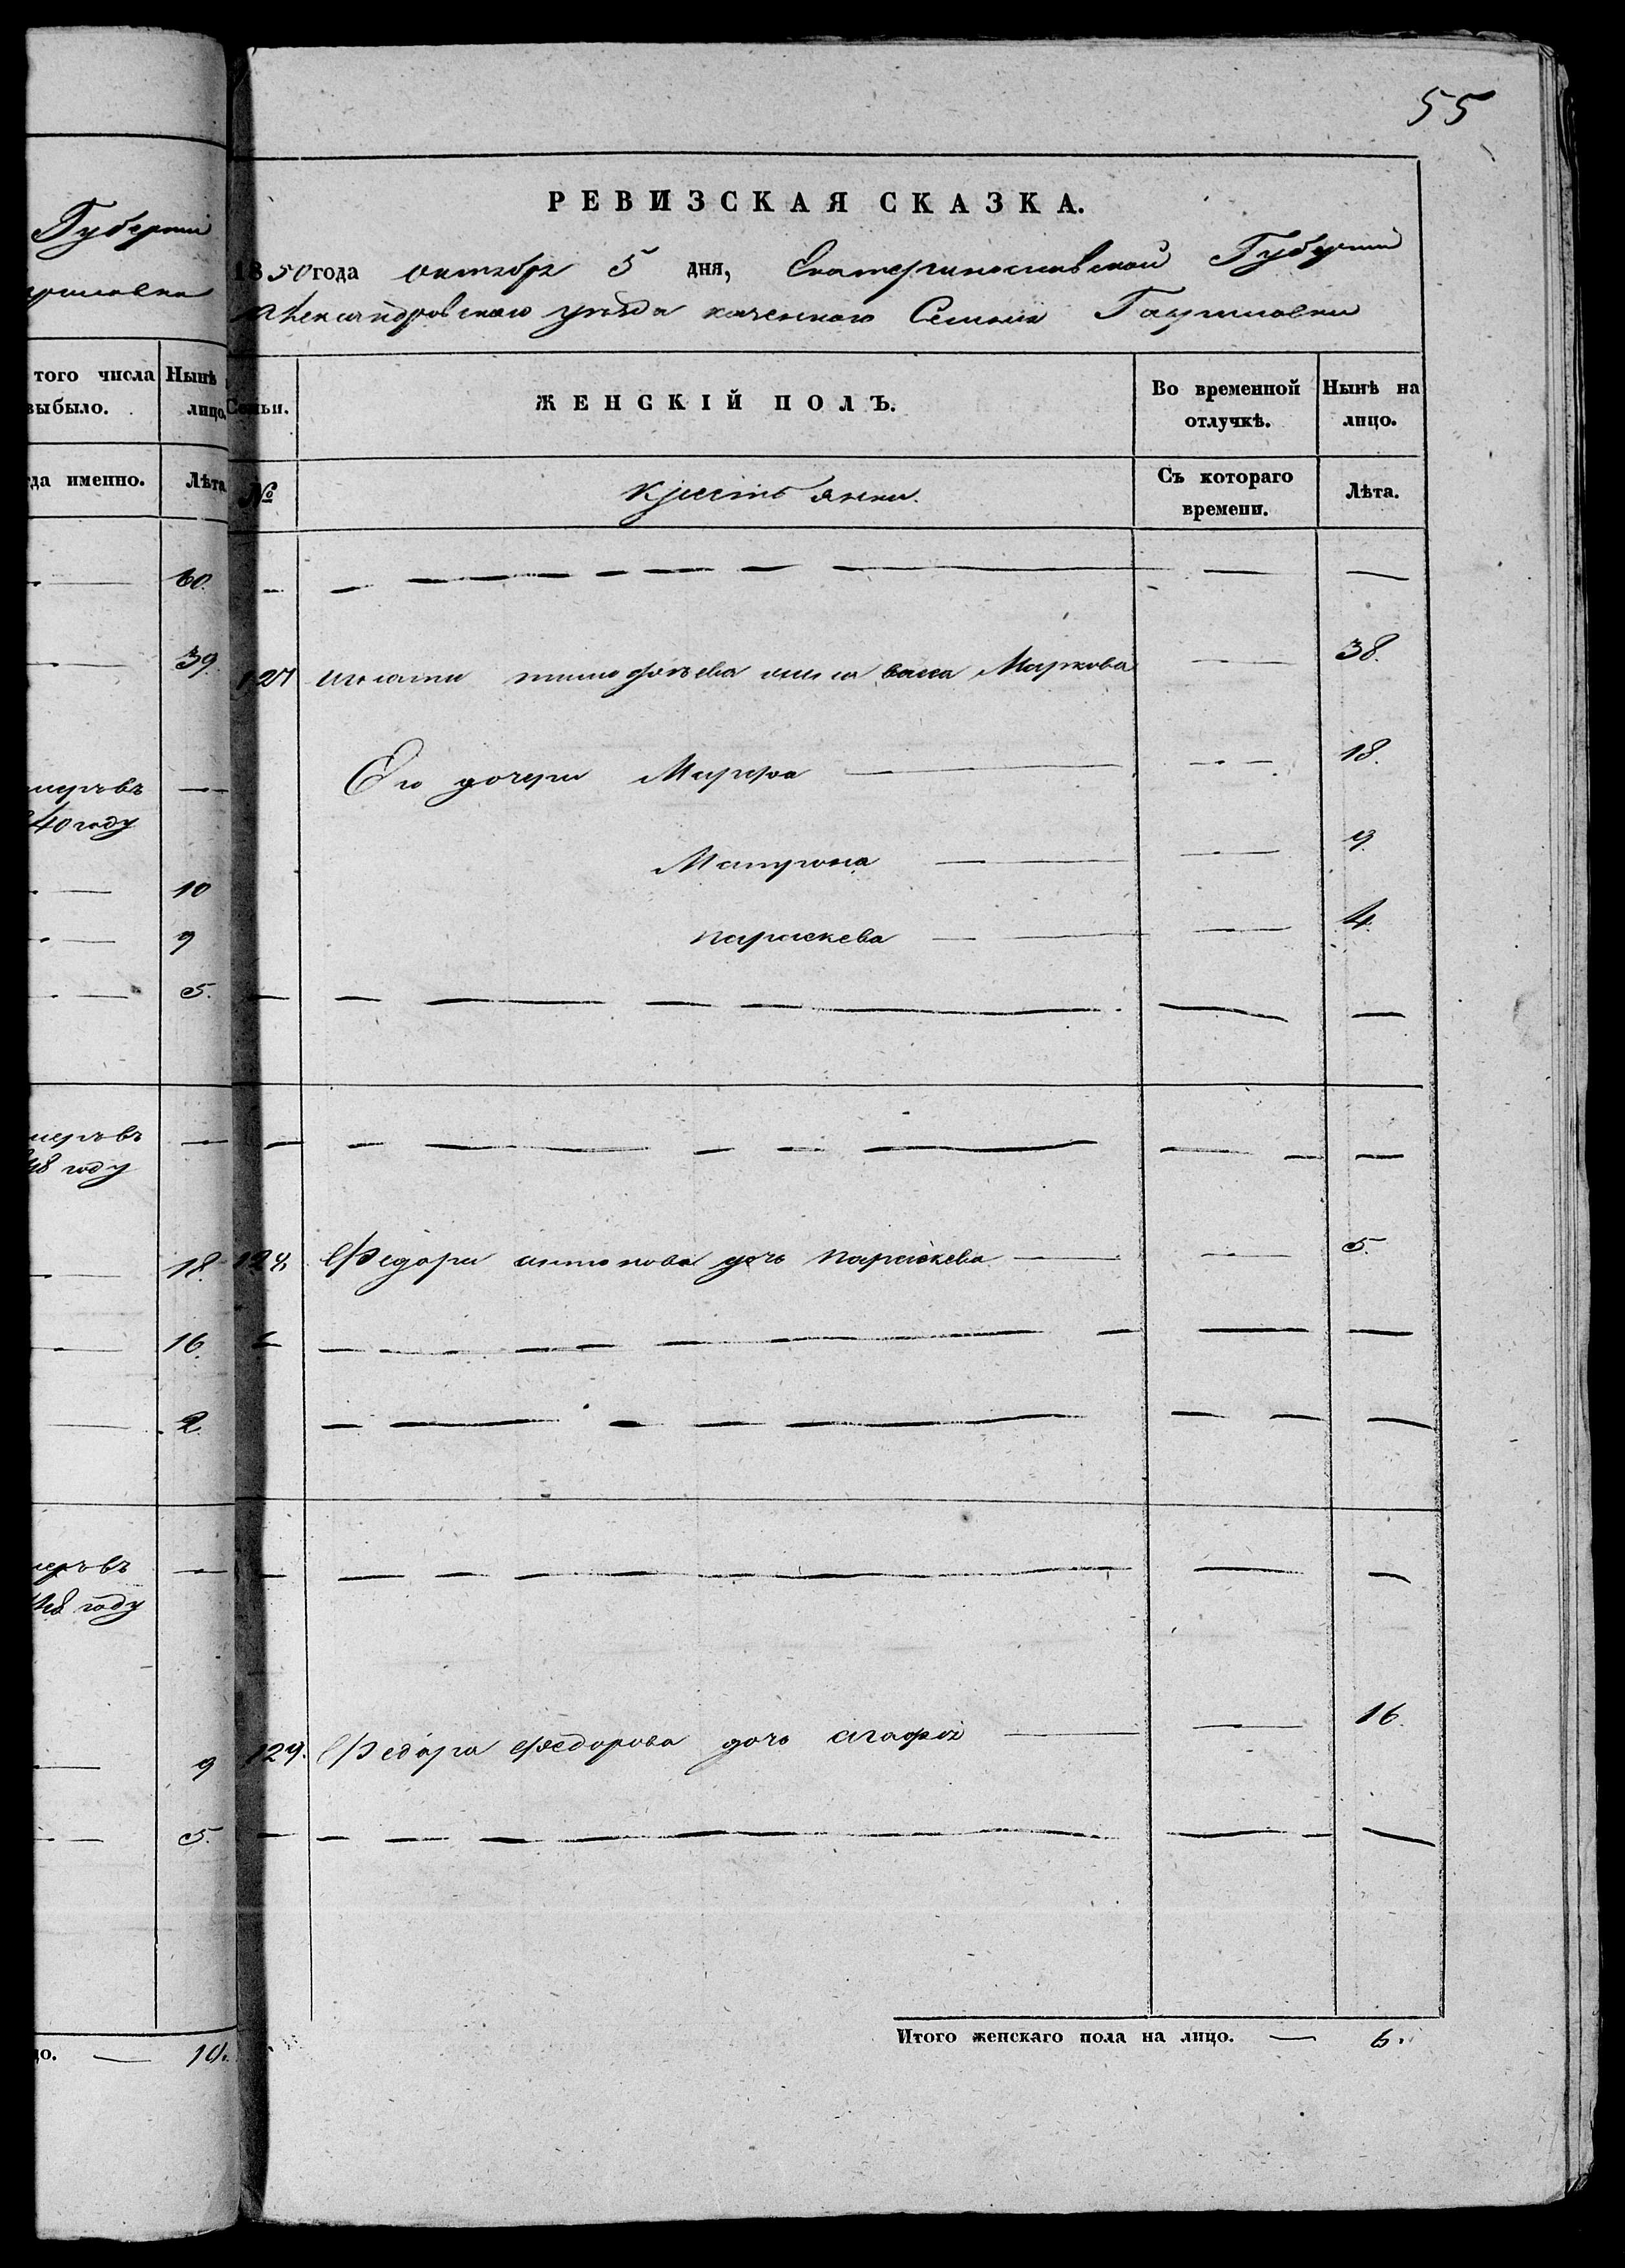 55
Губернии
РЕВИЗСКАЯ СКАЗКА.
1850 года октября 5 дня, Екатеринославской Губернии
Александровского уезда казенного Селения Гавриловки
того числа
выбыло.
Нынѣ
лицо.
Семьи.
ЖЕНСКІЙ ПОЛЪ.
Во временной
отлучкѣ.
Нынѣ на
лицо.
гда именно.
Лѣта
№
Крестьянки.
Съ котораго
времени.
Лѣта.
60.
39.
127 Игната тимофѣева жена васса Маркова 38.
Его дочери Марфа 18.
40 году
Матрона 9
10
параскева 4.
9
5.
48 году
18. 128 Федора антонова дочь параскева 5.
16.
2.
48 году
9 129. Федора федорова дочь агафия 16.
5.
Итого женскаго пола на лицо. — 6.
10.